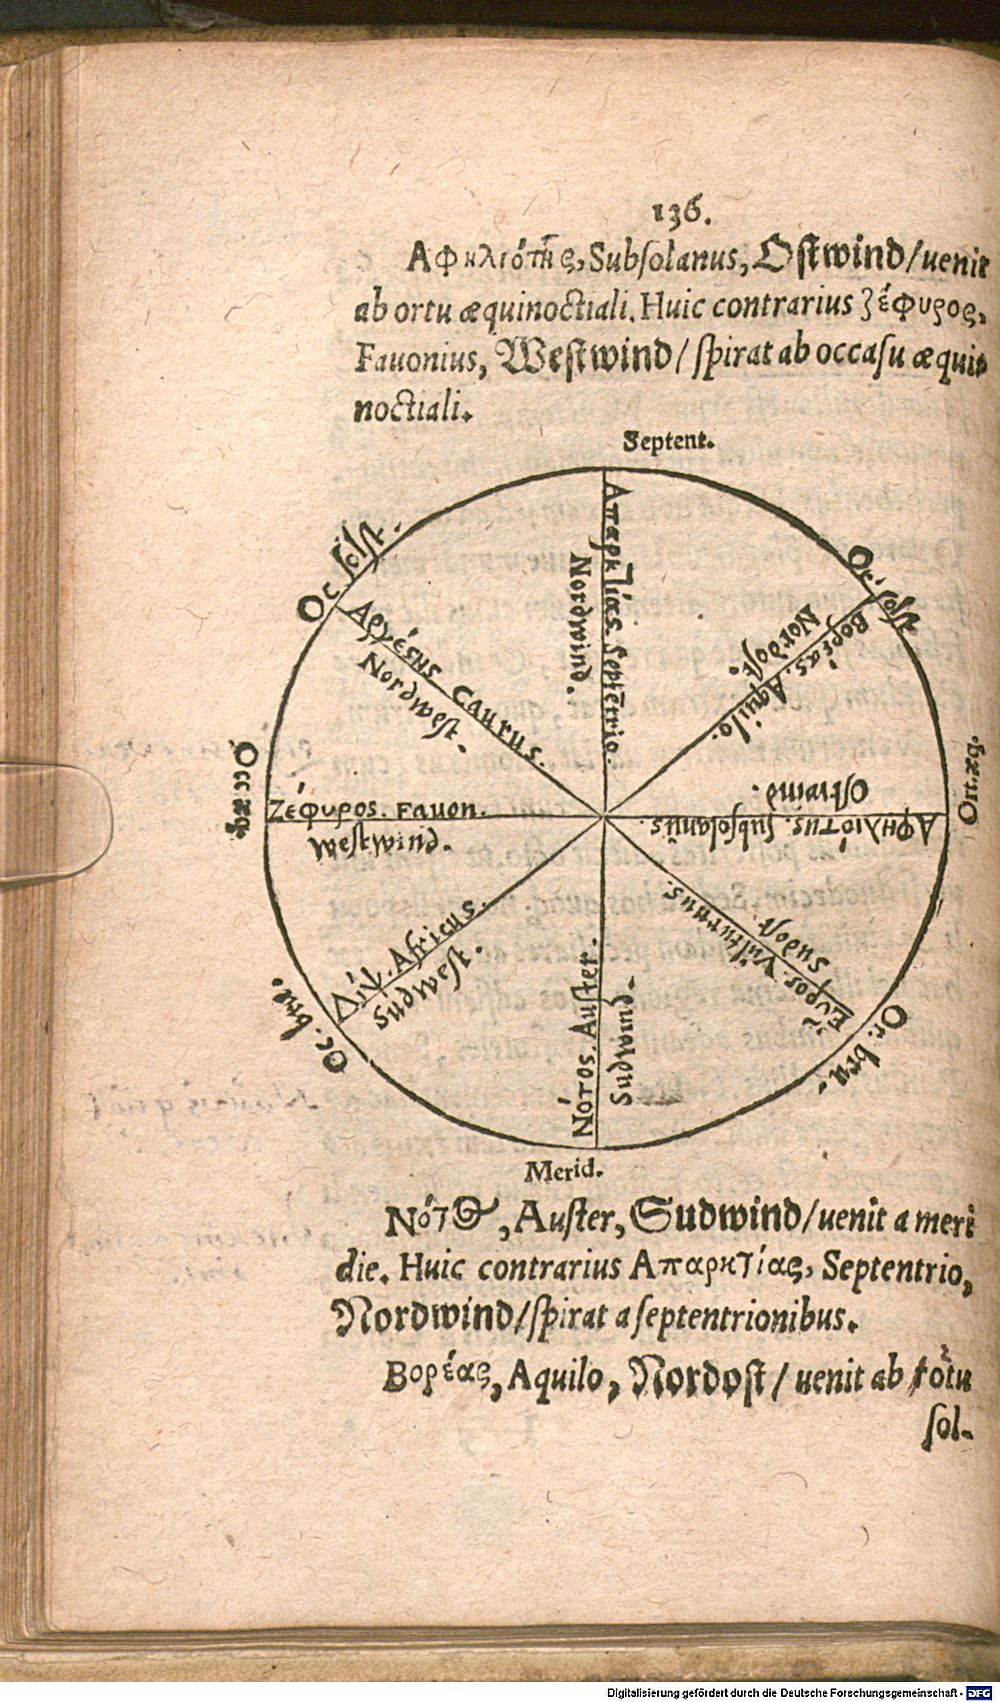 136.
Αφηλιότης, Subſolanus, Oſtwind/venit
ab ortu æquinoctiali. Huic contrarius ζέφυρος,
Fauonius, Weſtwind/ ſpirat ab occaſu æqui-
noctiali.
Septent.
Oc ſolſt.
Or: ſolſt
Απαρκτίας. Septētrio.
Nordwind.
Βορέας. Aquilo.
Nordoſt.
Αργέςης Caurus.
Nordweſt.
Occ æq.
Ort. æq.
Ζέφυρος. Favon.
Weſtwind.
Oſtwind.
Αφηλιότης. ſubſolanūs.
Λίψ. Africus.
Sudweſt.
Εὖρος. Vulturnus.
Sudoſt.
Νότος Auſter.
Sudwind.
Oc. bru.
Or: bru.
Merid.
Νότος, Auſter, Sudwind/uenit a meri
die. Huic contrarius Απαρκτίας, Septentrio,
Nordwind/ſpirat a ſeptentrionibus.
Βορέας, Aquilo, Nordoſt/ uenit ab
ſol-
Digitalisierung gefördert durch die Deutsche Forschungsgemeinschaft - DFG